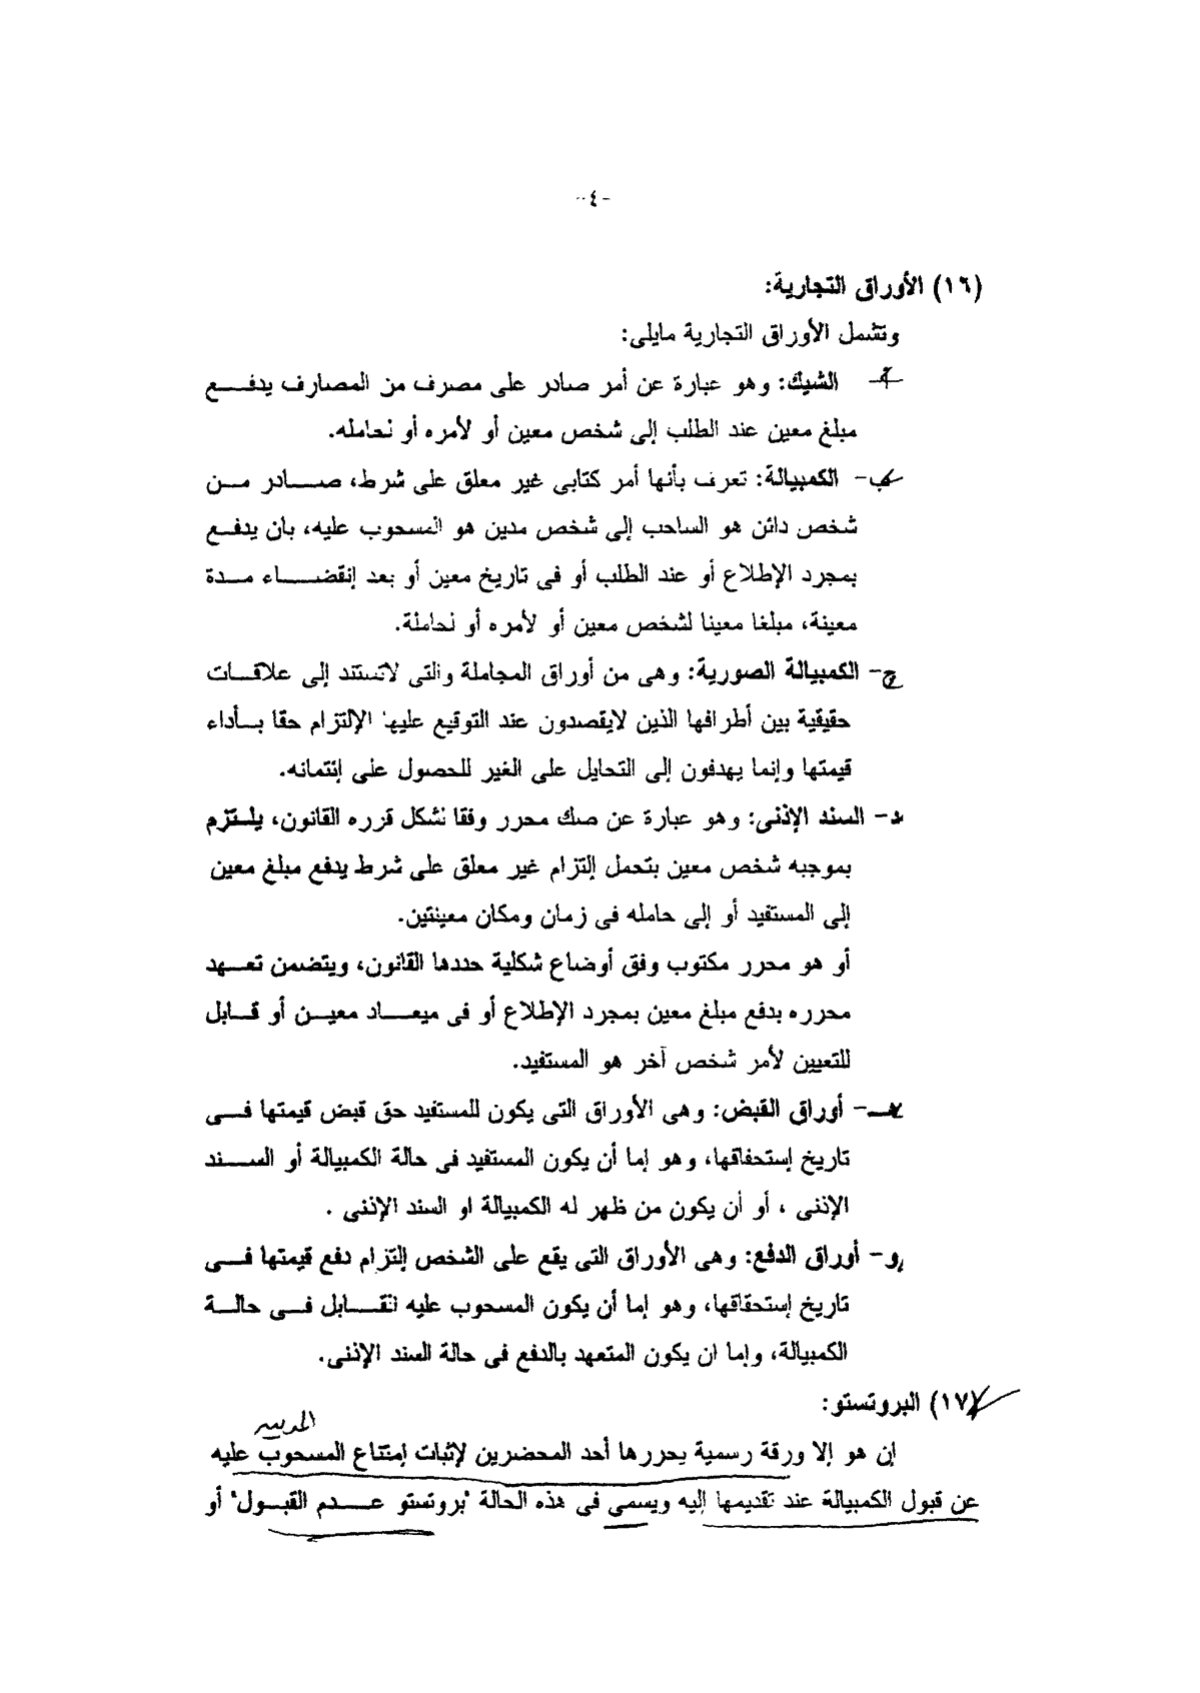 -٤-
(١٦) الأوراق التجارية:
وتشمل الأوراق التجارية مايلى:
أ- الشيك: وهو عبارة عن أمر صادر على مصرف من المصارف يدفع
مبلغ معين عند الطلب إلى شخص معين أو لأمره أو لحامله.
ب- الكمبيالة: تعرف بأنها أمر كتابى غير معلق على شرط، صادر من
شخص دائن هو الساحب إلى شخص مدين هو المسحوب عليه، بان يدفع
بمجرد الإطلاع أو عند الطلب أو فى تاريخ معين أو بعد إنقضاء مدة
معينة، مبلغا معينا لشخص معين أو لأمره أو لحاملة.
ج- الكمبيالة الصورية: وهى من أوراق المجاملة والتى لاتستند إلى علاقات
حقيقية بين أطرافها الذين لايقصدون عند التوقيع عليها الإلتزام حقا بأداء
قيمتها وإنما يهدفون إلى التحايل على الغير للحصول على إئتمانه.
د- السند الإذنى: وهو عبارة عن صك محرر وفقا لشكل قرره القانون، يلتزم
بموجبه شخص معين بتحمل إلتزام غير معلق على شرط يدفع مبلغ معين
إلى المستفيد أو إلى حامله فى زمان ومكان معينتين.
أو هو محرر مكتوب وفق أوضاع شكلية حددها القانون، ويتضمن تعهد
محرره بدفع مبلغ معين بمجرد الإطلاع أو فى ميعاد معين أو قابل
للتعيين لأمر شخص آخر هو المستفيد.
هـ- أوراق القبض: وهى الأوراق التى يكون للمستفيد حق قبض قيمتها فى
تاريخ إستحقاقها، وهو إما أن يكون المستفيد فى حالة الكمبيالة أو السند
الإذنى ، أو أن يكون من ظهر له الكمبيالة او السند الإذنى .
و- أوراق الدفع: وهى الأوراق التى يقع على الشخص إلتزام دفع قيمتها فى
تاريخ إستحقاقها، وهو إما أن يكون المسحوب عليه القابل فى حالة
الكمبيالة، وإما ان يكون المتعهد بالدفع فى حالة السند الإذنى.
(١٧) البروتستو:
إن هو إلا ورقة رسمية يحررها أحد المحضرين لإثبات إمتناع المسحوب عليه
عن قبول الكمبيالة عند تقديمها إليه ويسمى فى هذه الحالة "بروتستو عدم القبول" أو